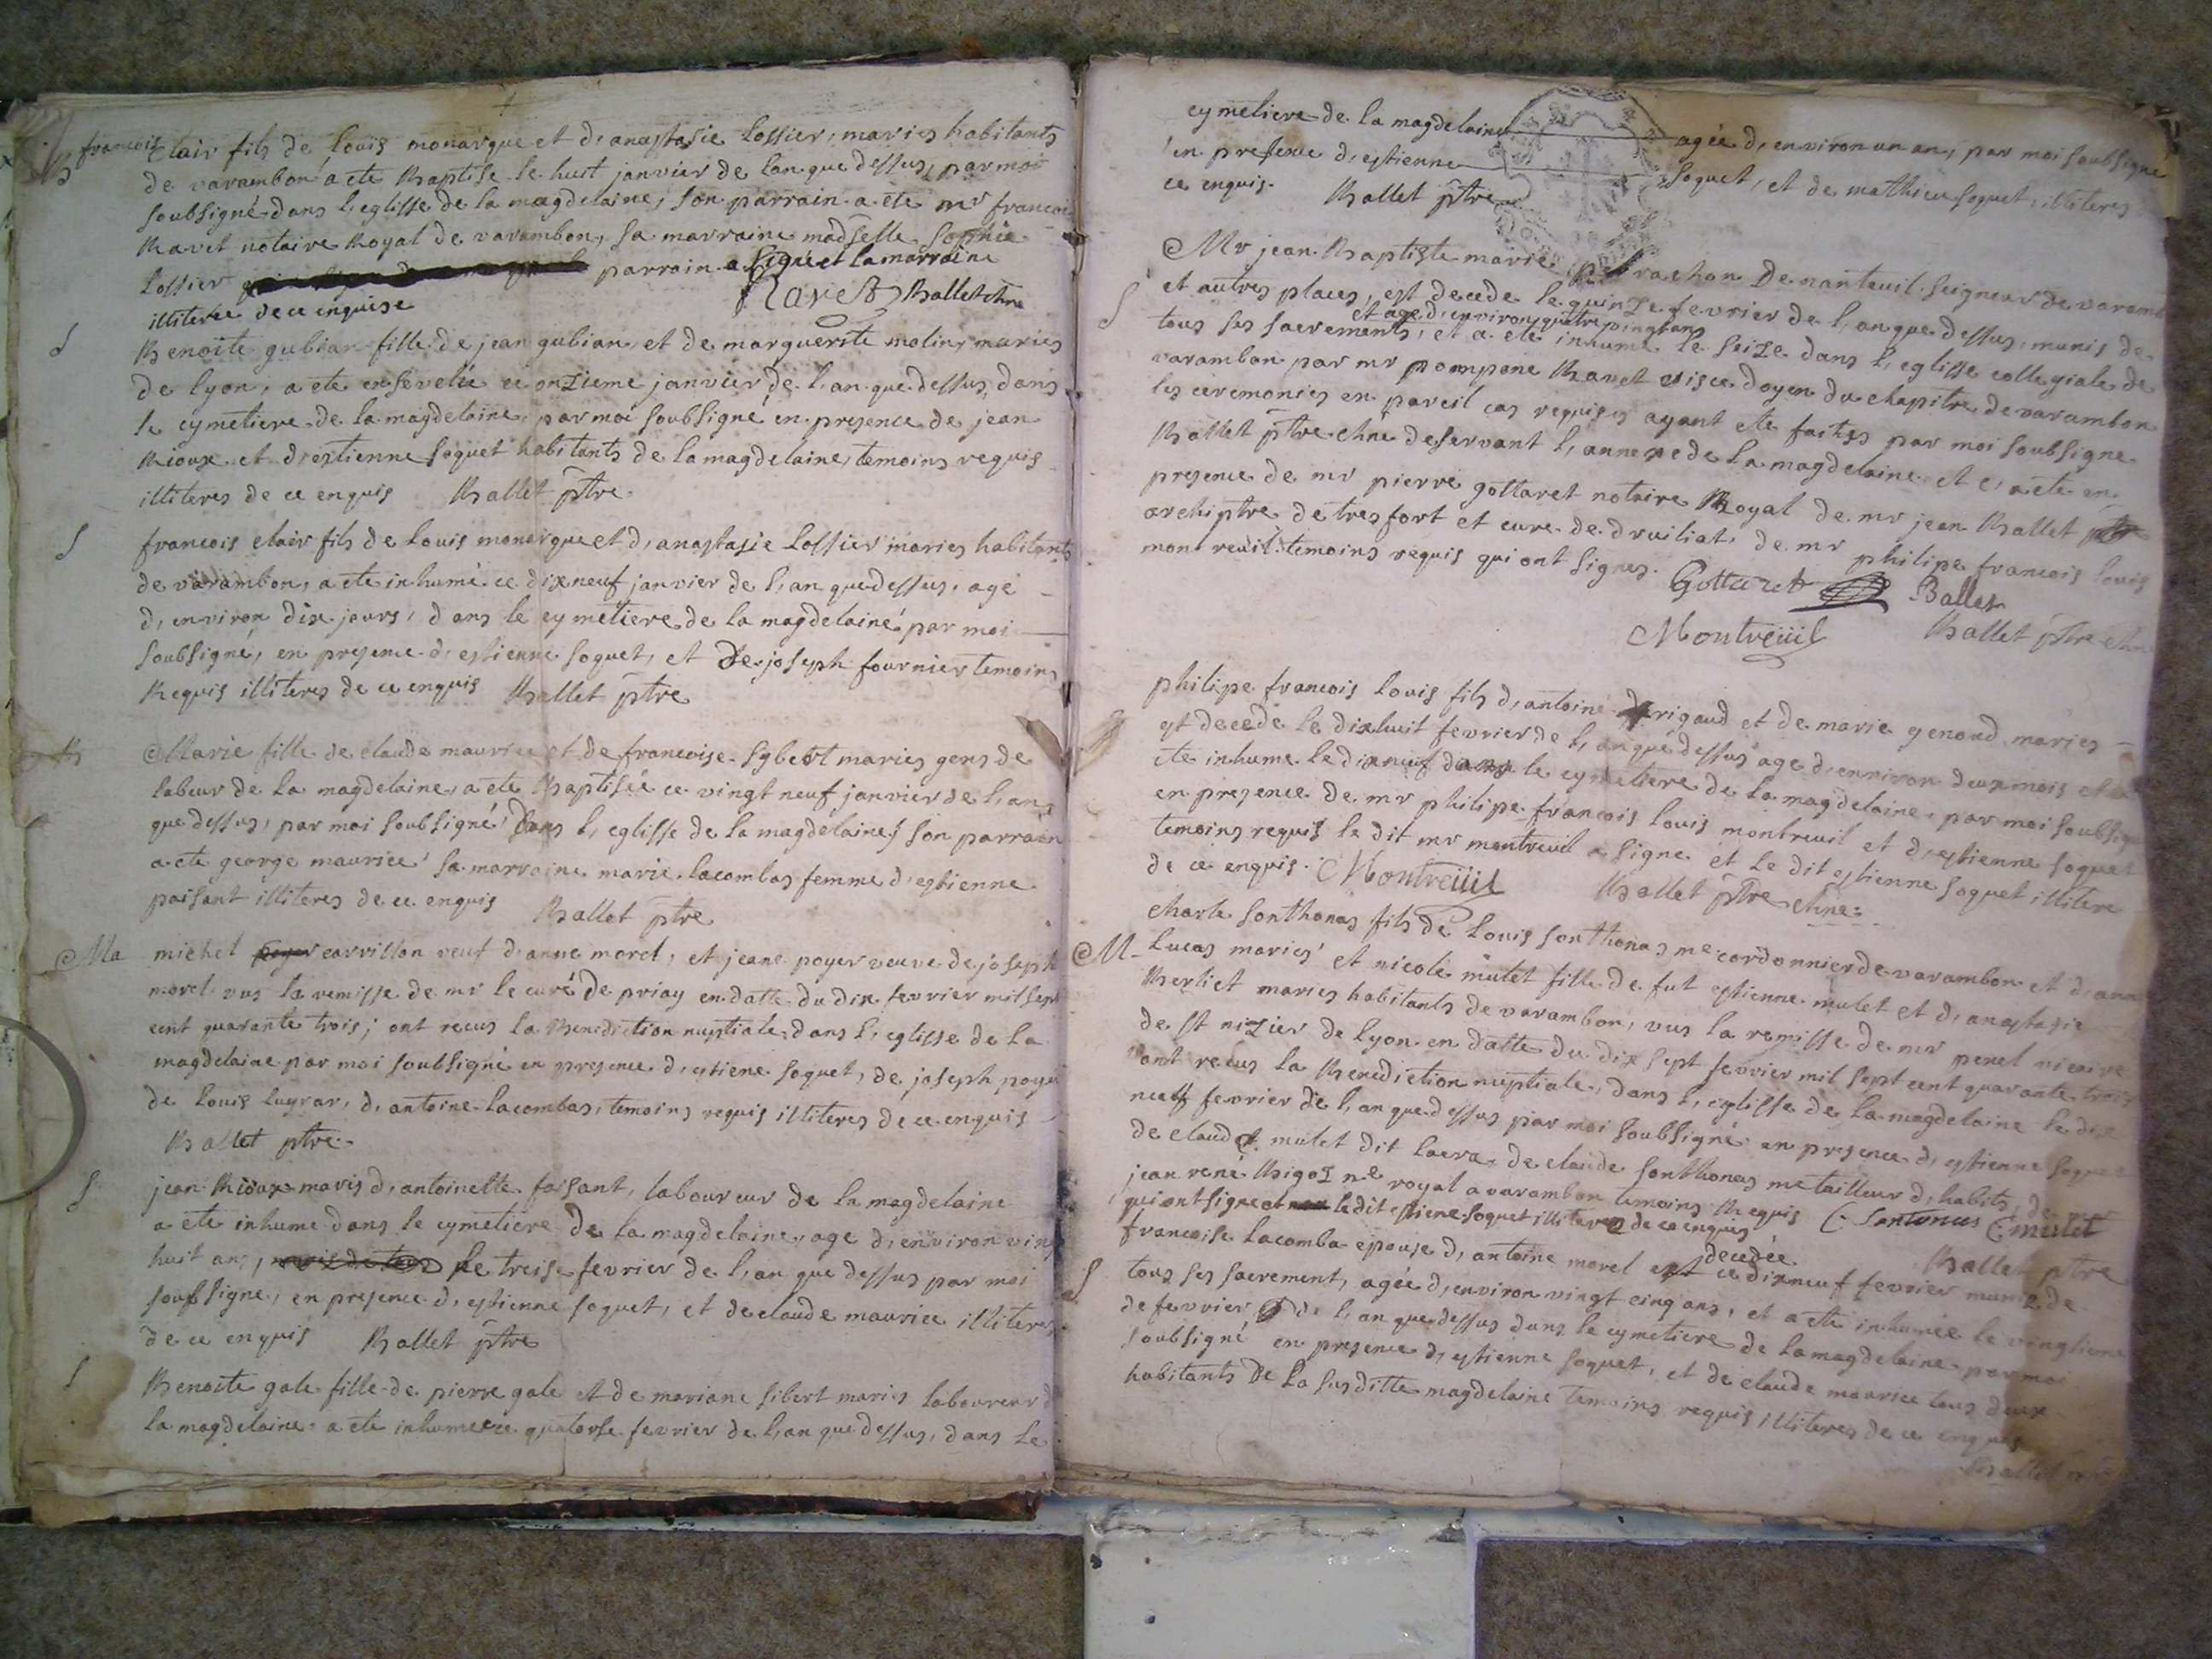 francois clair fils de louis monarque et d, anastasie Lossier, maries habitants
de varambon a ete Baptise le huit janvier de lan que dessus, par moi
soubsigné dans l, eglisse de la magdelaine, son parrain a ete mr francois
Ravet notaire Royal de varambon, sa marraine madselle sophie
Lossier parrain a signé et la marraine
illiteree de ce enquise Ravet Ballet chne
S Benoite gubian fille de jean gubian et de marguerite molin, maries
de lyon, a ete ensevelie ce onzieme janvier de l, an que dessus, dans
le cymetiere de la magdelaine, par moi soubsigné en presence de jean
Rioux et d, estienne soquet habitants de la magdelaine, temoins requis
illiteres de ce enquis Ballet ptre
S francois clair fils de Louis monarque et d, anastasie Lossier maries habitants
de varambon, a ete inhumé ce dixneuf janvier de l, an que dessus, age
d, environ dix jours, dans le cymetiere de la magdelaine par moi
soubsigné, en presence d, estienne soquet, et de joseph fournier temoins
Requis illiteres de ce enquis Ballet ptre
B Marie fille de claude maurice et de francoise sybert maries gens de
labeur de la magdelaine, a ete Baptisée ce vingt neuf janvier de l, an
que dessus, par moi soubsigné, dans l, eglisse de la magdelaine, son parrain
a ete george maurice sa marraine marie lacombas femme d, estienne
paisant illiteres de ce enquis Ballet ptre
Ma michel poyer carvillon veuf d, anne morel, et jeane poyer veuve de joseph
morel vus la remisse de mr le curé de priay en datte du dix fevrier mil sept
cent quarante trois, ont recus la Benediction nuptiale, dans l, eglisse de la
magdelaine par moi soubsigné en presence d, estiene soquet, de joseph poyer
de louis luyrar, d, antoine lacombas, temoins requis illiteres de ce enquis
Ballet ptre
S jean Rioux maris d, antoinette faisant, laboureur de la magdelaine
a ete inhume dans le cymetiere de la magdelaine, age d, environ vint
huit ans, le treise fevrier de l, an que dessus par moi
soubsigne, en presence d, estienne soquet, et de claude maurice illiteres
de ce enquis Ballet ptre
S Benoite gale fille de pierre gale et de mariane sibert maries laboureurs d
la magdelaine a ete inhumee ce quatorse fevrier de l, an que dessus, dans le
cymetiere de la magdelaine agée d, environ un an, par moi soubsigne
en presence d, estienne soquet, et de mathieu soquet, illiteres
ce enquis Ballet ptre
Mr jean Baptiste marie perrachon de nanteuil seigneur de varambon
S et autres places, est decede le quinze fevrier de l, an que dessus, munis de
et age d, environ quatre vingt ans
tous ses sacrements, et a ete inhume le seize dans l, eglisse collegiale de
varambon par mr pompone Ravet doyen du chapitre de varambon
les ceremonies en pareil cas requises ayant ete faites par moi soubsigne
Ballet ptre chne deservant l, annexe de la magdelaine et c, a ete en
presence de mr pierre gottaret notaire Royal de mr jean Ballet
archiptre de tresfort et cure de druiliat, de mr philipe francois louis
montreuil temoins requis qui ont signes. Gottaret Ballet
Montreüil Ballet ptre chne
philipe francois louis fils d, antoine rigaud et de marie genoud maries
est decede le dixhuit fevrier de l, an que dessus age d, environ deux mois et a
ete inhume le dixneuf dans le cymetiere de la magdelaine, par moi soubsigne
en presence de mr philipe francois louis montreuil et d, estienne soquet
temoins requis le dit mr montreuil a signe et le dit estienne soquet illitere
de ce enquis. Montreüil Ballet ptre chne
charle sonthonas fils de louis sonthonas me cordonnier de varambon et d, anne
M lucas maries et nicole mulet fille de fut estienne mulet et d, anastasie
Berliet maries habitants de varambon, vus la remisse de mr penel vicaire
de st nizier de lyon en datte du dix sept fevrier mil sept cent quarante trois
ont recus la Benediction nuptiale, dans l, eglisse de la magdelaine le dix
neuf fevrier de l, an que dessus par moi soubsigné en presence d, estienne soquet
de claude mulet dit lacra, de claude sonthonas me tailleur d, habits, de
jean rené Bigoz ne royal a varambon temoins Requis C. Santonas C mulet
qui ont signe et le dit estiene soquet illitere de ce enquis Ballet ptre
francoise lacomba epouse d, antoine morel est decedée ce dixneuf fevrier munie de
S tous ses sacrement, agée d, environ vingt cinq ans, et a ete inhumée le vingtieme
de fevrier de l, an que dessus dans le cymetiere de la magdelaine par moi
soubsigné en presence d, estienne soquet, et de claude maurice tous deux
habitants de la susditte magdelaine temoins requis illiteres de ce enquis
Ballet